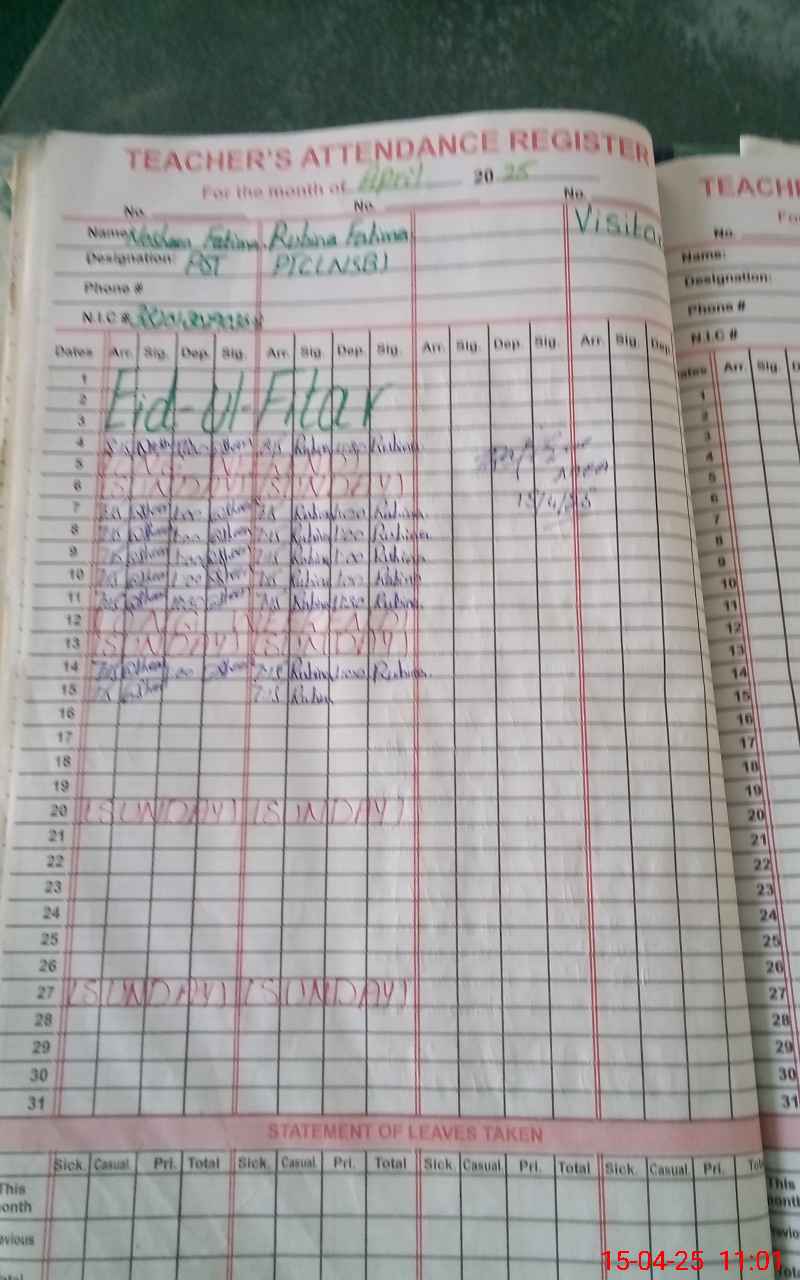 TEACHER'S ATTENDANCE REGISTER
For the month of April 20 25
No. No. No.
Name Fatima Rubina Fatima Visitor
Designation: PST PTC(NSB)
Phone #
N.I.C #
Dates Arr. Sig. Dep. Sig. Arr. Sig. Dep. Sig. Arr. Sig. Dep. Sig. Arr. Sig. Dep
1
2 Eid-ul-Fitar
3
4 Rubina Rubina
5 LONG WEEKEND
6 (SUNDAY) (SUNDAY)
15/4/25
7 7:15 1:00 7:15 Rubina 1:00 Rubina
8 7:15 1:00 7:15 Rubina 1:00 Rubina
9 7:15 1:00 7:15 Rubina 1:00 Rubina
10 7:15 1:00 7:15 Rubina 1:00 Rubina
11 7:15 7:15 Rubina Rubina
12 LONG WEEKEND
13 (SUNDAY) (SUNDAY)
14 7:15 1:00 7:15 Rubina 1:00 Rubina
15 7:15 7:15 Rubina
16
17
18
19
20 (SUNDAY) (SUNDAY)
21
22
23
24
25
26
27 (SUNDAY) (SUNDAY)
28
29
30
31
STATEMENT OF LEAVES TAKEN
Sick. Casual. Pri. Total Sick. Casual. Pri. Total Sick. Casual. Pri. Total Sick. Casual. Pri.
This
onth
evious
tal
TEACH
Fo
No.
Name:
Designation:
Phone #
N.I.C #
ates Arr. Sig. D
1
2
3
4
5
6
7
8
9
10
11
12
13
14
15
16
17
18
19
20
21
22
23
24
25
26
27
28
29
30
31
This
onth
15-04-25 11:01